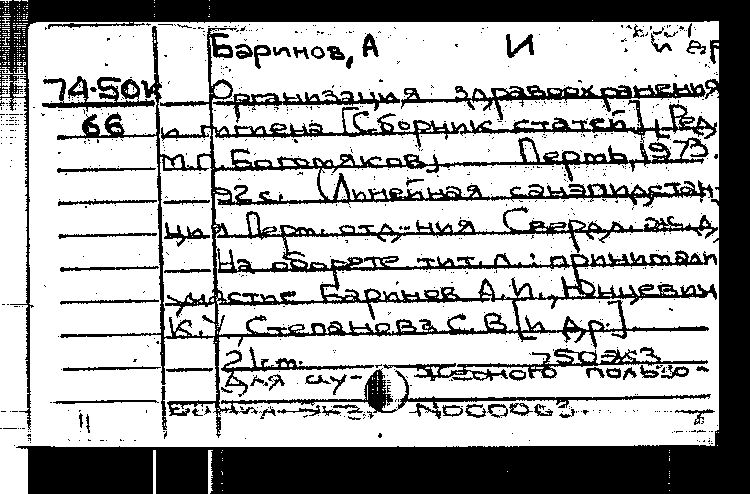 Баринов, А И и др
74.50к Организация здравоохранения
66 и гигиена [Сборник статей] [Ред.
М.П. Богомяков]. Пермь, 1973.
92 с. (Линейная санэпидстан-
ция Перм. отд-ния Свердл. ж. д.
На обороте тит. л.: принимали
участие Баринов А.И., Юнцевич
К.У, Степанова С.В [и др.].
21 ст. 750экз
Для слу- жебного пользо-
вания. Экз. N000063.